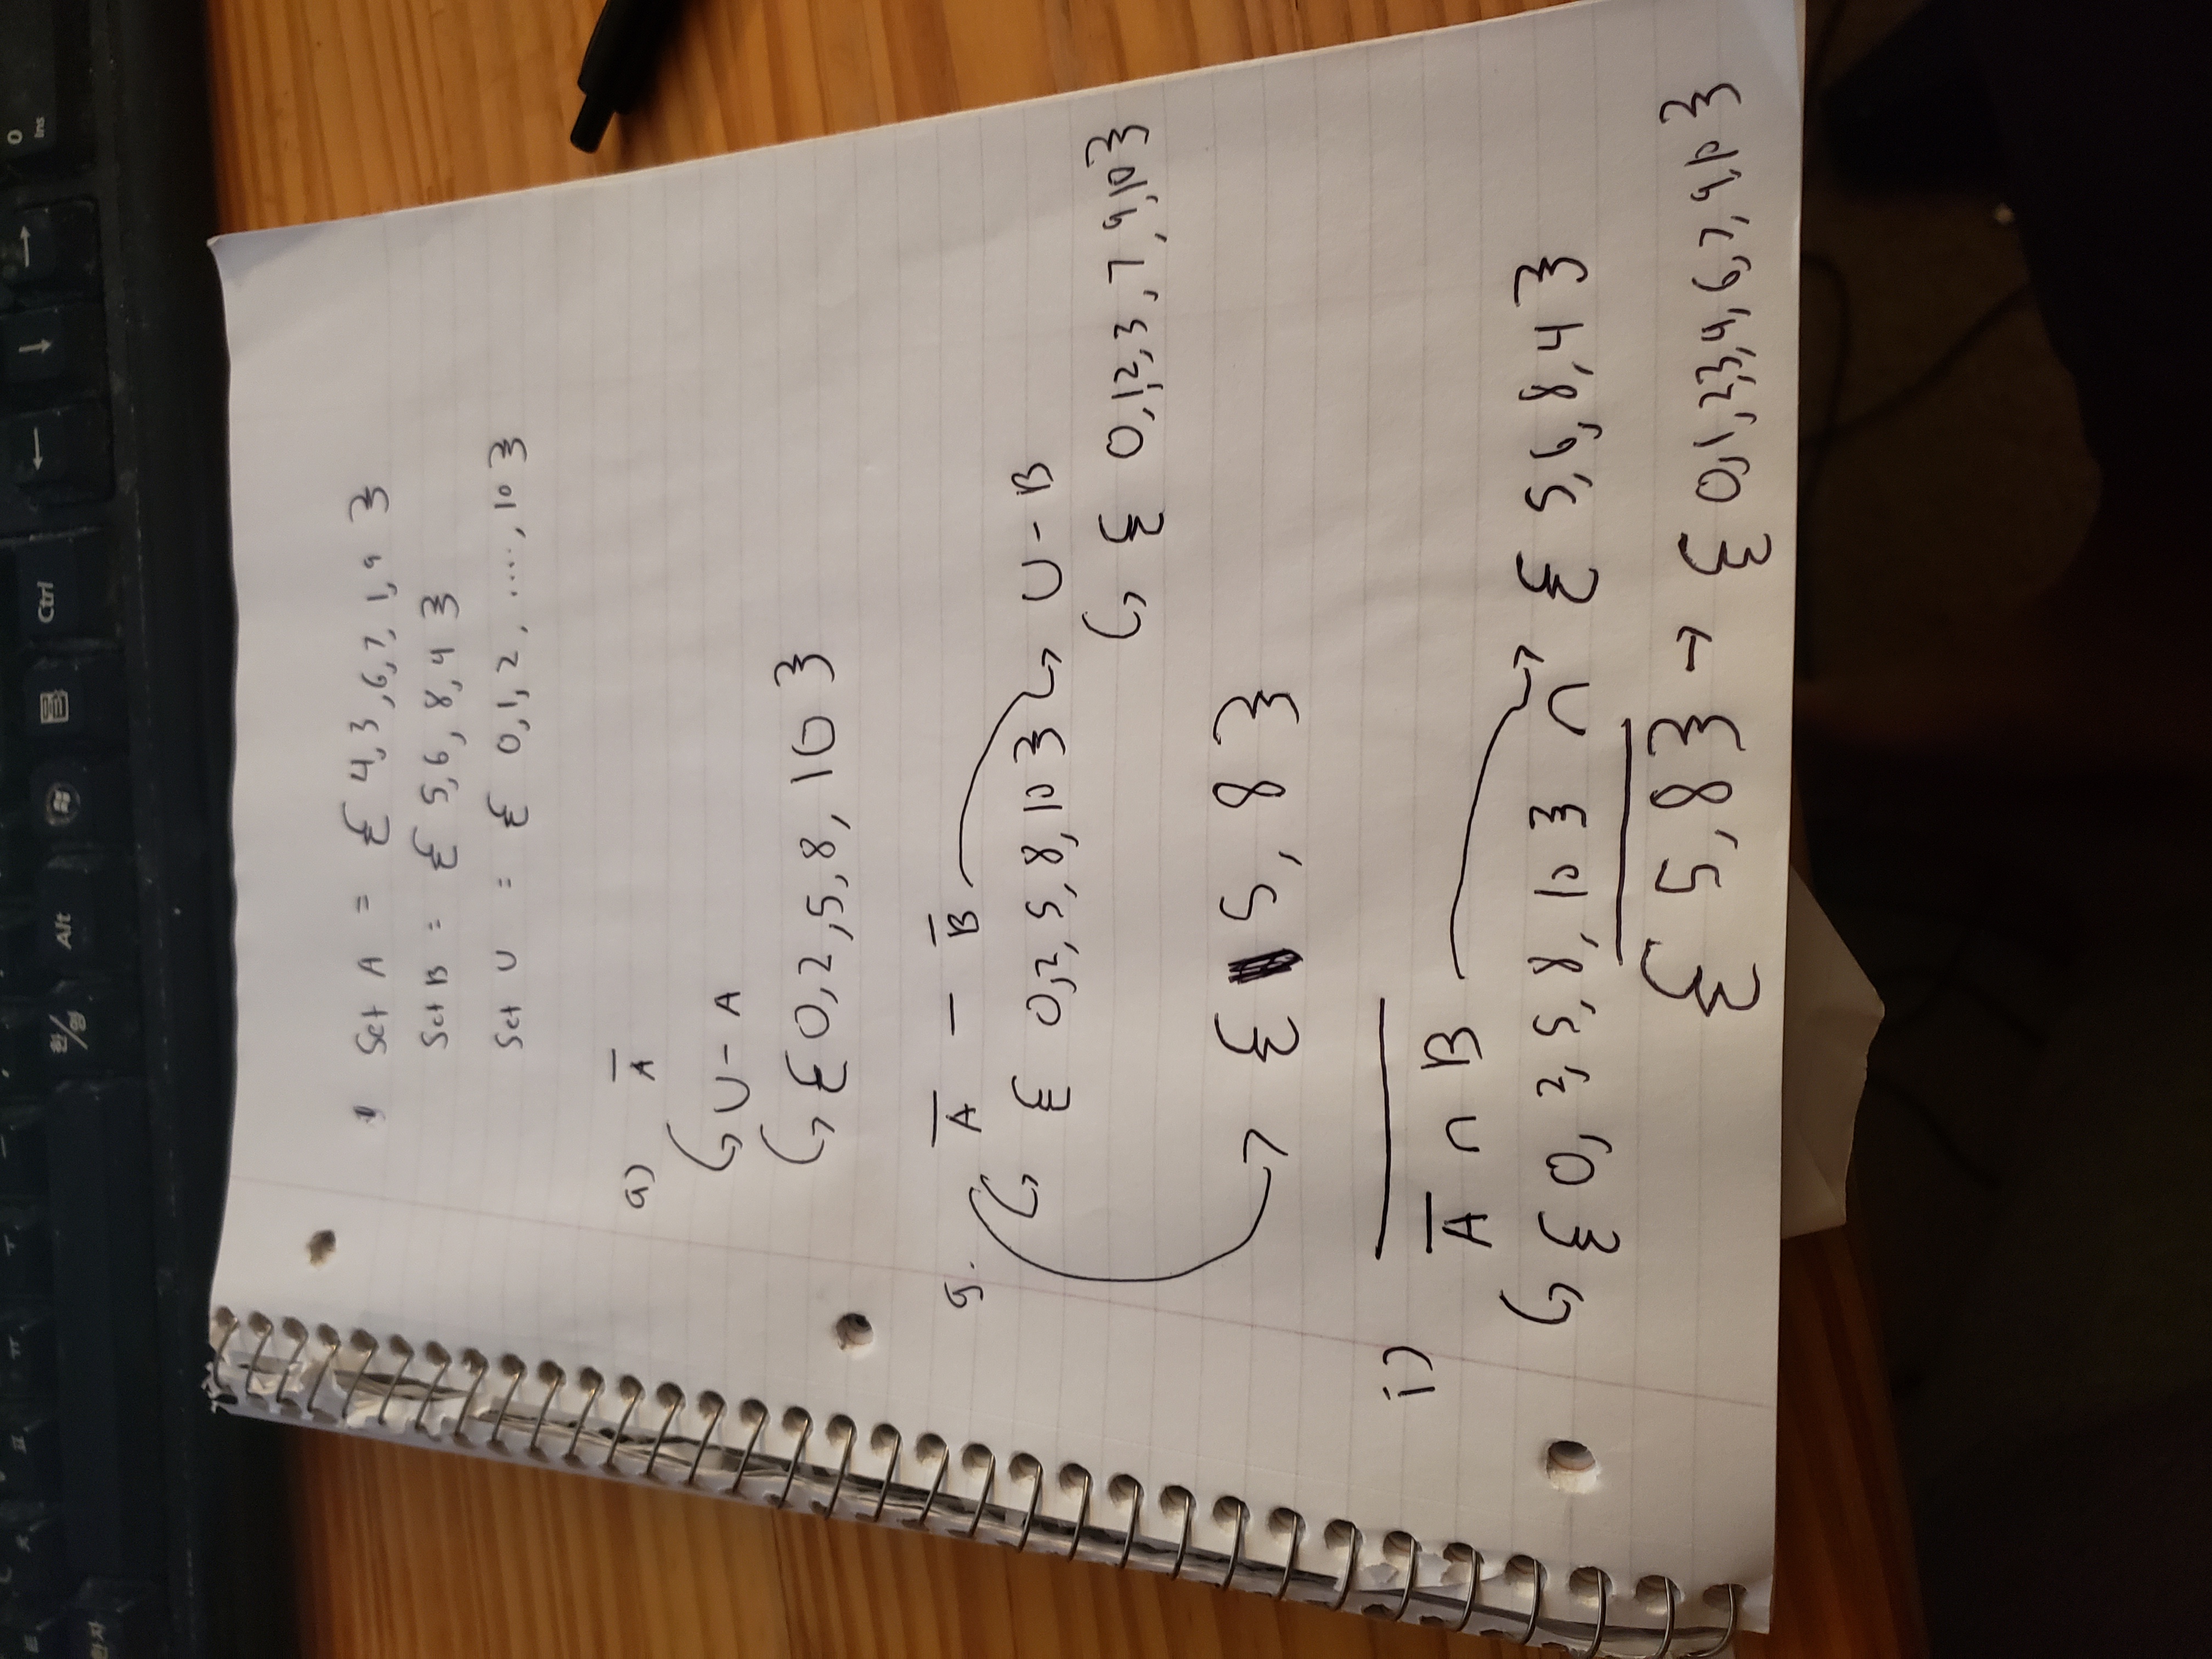 한/영 Alt Ctrl ← ↓ → 0 Ins
한자
Set A = { 4, 3, 6, 7, 1, 9 }
Set B = { 5, 6, 8, 4 }
Set U = { 0, 1, 2, ...., 10 }
a) A̅
U - A
{ 0, 2, 5, 8, 10 }
g. A̅ - B̅
{ 0, 2, 5, 8, 10 } U - B
{ 0, 1, 2, 3, 7, 9, 10 }
{ 5, 8 }
i) \overline{A̅ ∩ B}
{ 0, 2, 5, 8, 10 } ∩ { 5, 6, 8, 4 }
\overline{{ 5, 8 }} → { 0, 1, 2, 3, 4, 6, 7, 9, 10 }